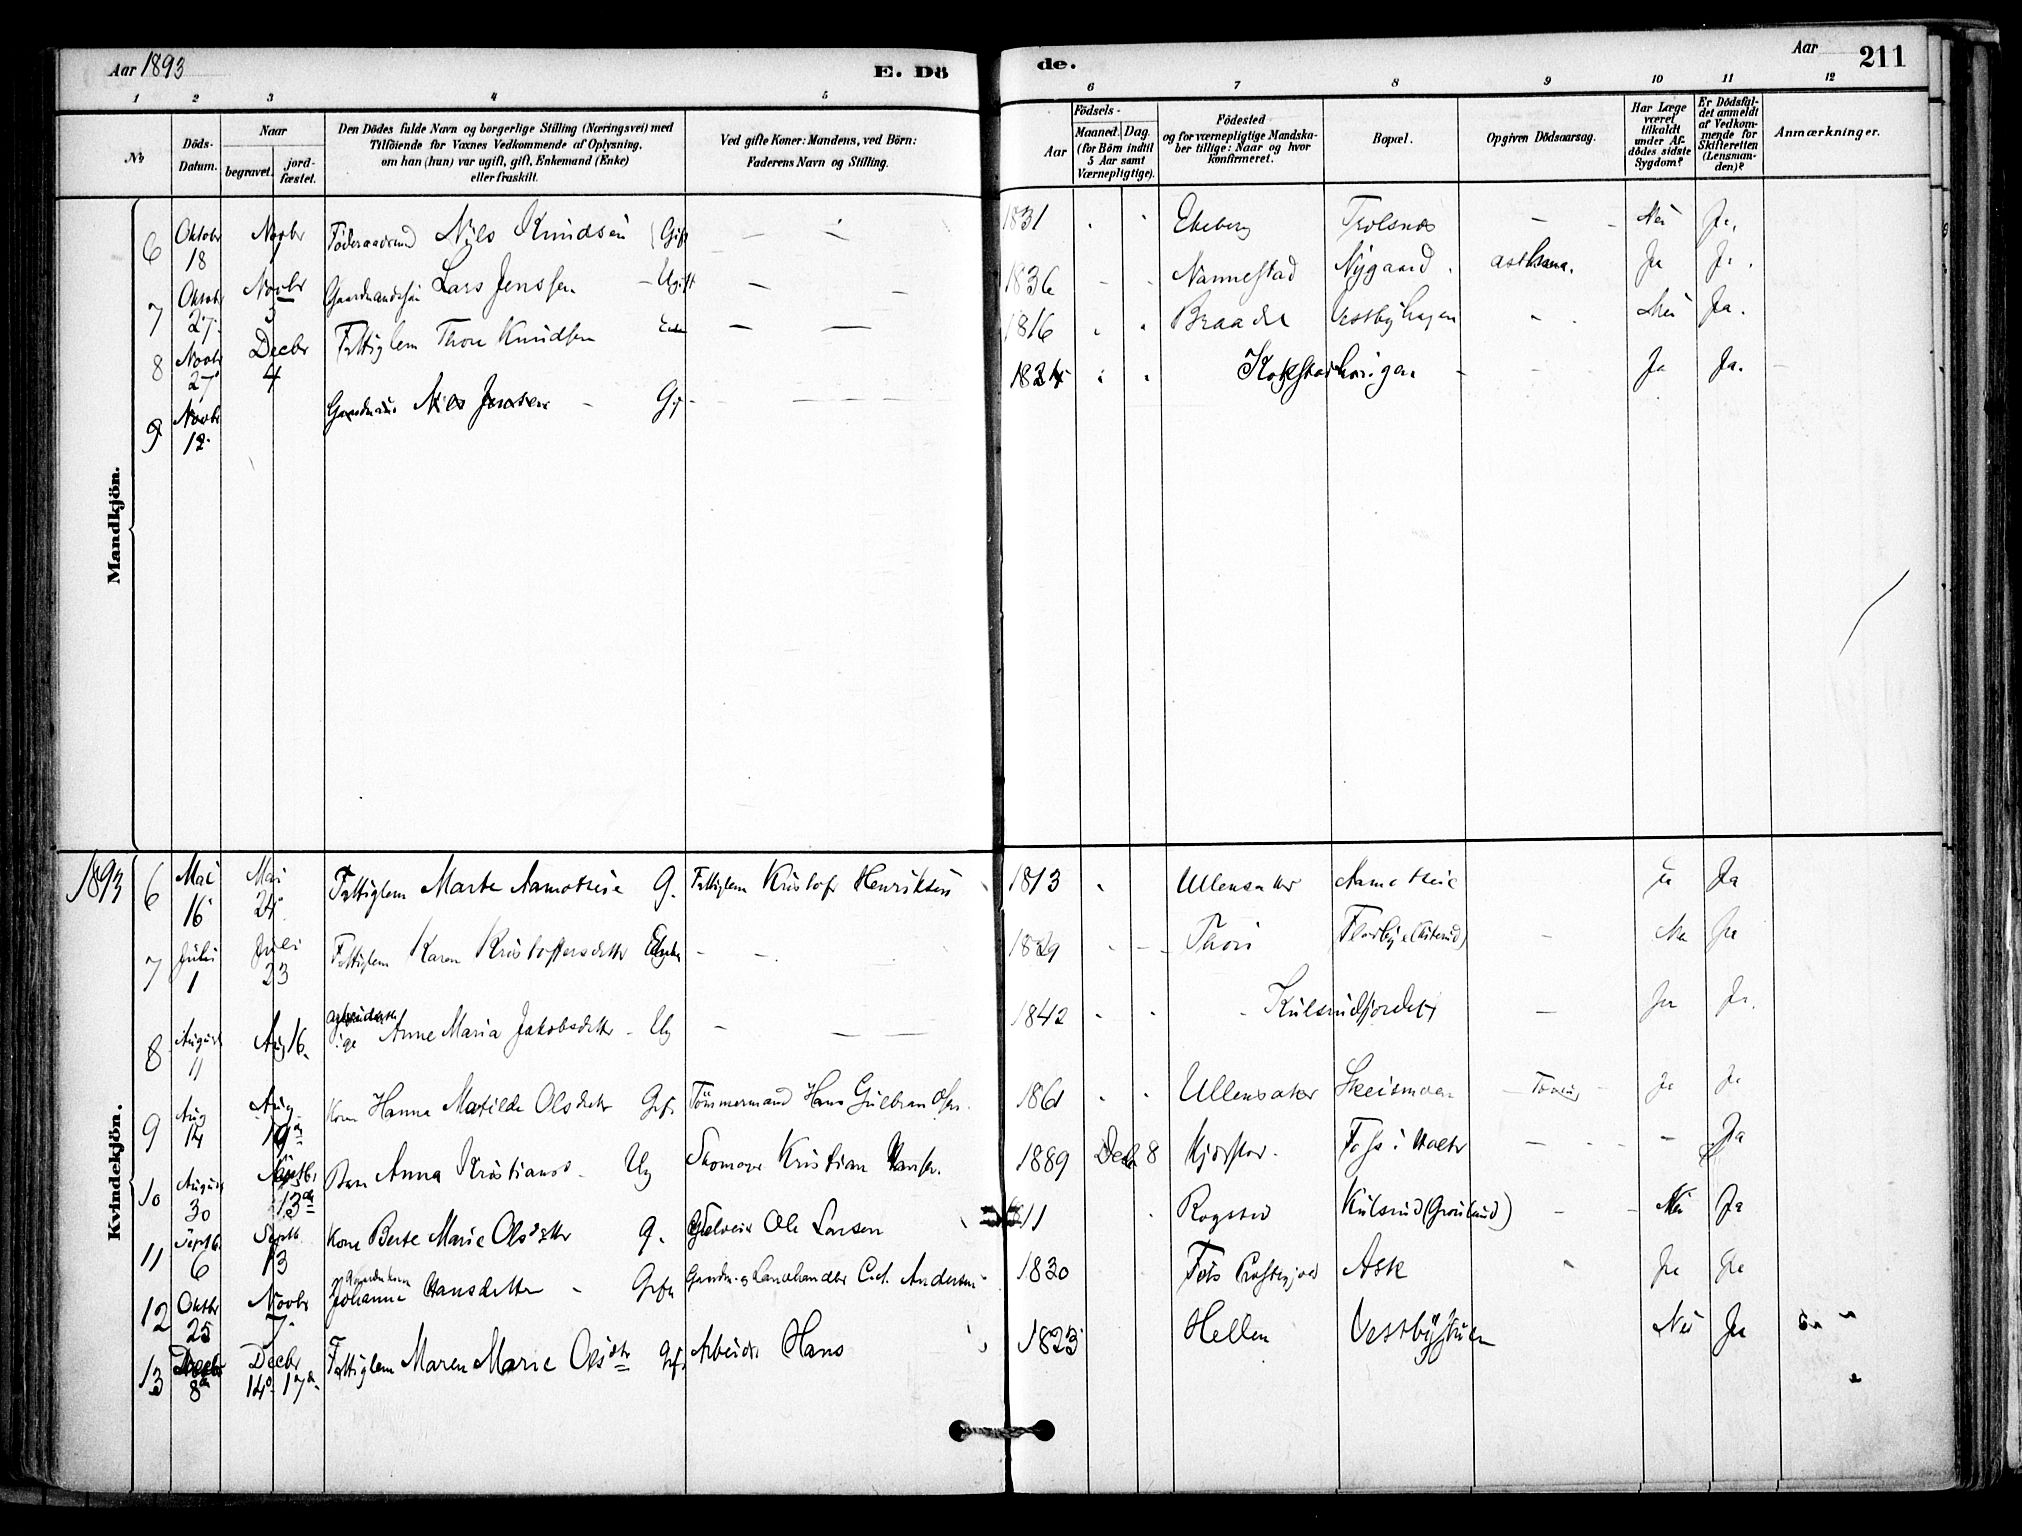 Aar 1893
E. Dö
de.
Aar
211
1 2 3 4 5 6 7 8 9 10 11 12
No
Döds-
Datum.
Naar
begravet.
jord-
fæstet.
Den Dödes fulde Navn og borgerlige Stilling (Næringsvei) med
Tilföiende for Voxnes Vedkommende af Oplysning,
om han (hun) var ugift, gift, Enkemand (Enke)
eller fraskilt.
Ved gifte Koner: Mandens, ved Börn:
Faderens Navn og Stilling.
Födsels-
Aar
Maaned. Dag.
(for Börn indtil
5 Aar samt
Værnepligtige).
Födested
og for værnepligtige Mandska-
ber tillige: Naar og hvor
konfirmeret.
Bopæl.
Opgiven Dödsaarsag.
Har Læge
været
tilkaldt
under Af-
dödes sidste
Sygdom?
Er Dödsfal-
det anmeldt
af Vedkom-
mende for
Skifteretten
(Lensman-
den)?
Anmærkninger.
Mandkjön.
6 Oktobr 18 Novbr 1 Föderaadsmd Nils Knudsen Gift 1831 Ekeberg Trolsnes Nei Ja.
7 Oktobr 27 Novbr 5 Lars Jenssen Ugift 1836 Nannestad Nygaard asthma. Ja Ja.
8 Novbr 27 Decbr 4 Fattiglem Thore Knudsen Enke 1816 Braadel Vestbyhagen Nei Ja.
9 Novbr 12 Gaardmand Nils Jensen Gift 1824 Ja Ja.
Kvindekjön.
1893
6 Mai 16 Mai 24 Fattiglem Marte Aamotseie G. Fattiglem Kristofr Henriksen 1813 Ullensaker Aamotseie Ja Ja
7 Juli 1 Juli 23 Fattiglem Karen Kristoffersdatter 1829 Flatby Ja
8 August 11 Aug 16 Anne Maria Jakobsdatter Ug 1842 Kulsrudjordet Ja Ja.
9 Aug 14 Aug 19de Kone Hanna Matilde Olsdatter Gift Tömmermand Hans Gulbransen 1861 Ullensaker Skeismoen Ja Ja
10 August 30 Septb. 13de Barn Anna Kristians Ug Skomager Kristian Hansen 1889 Decb 8 Foss i Holter Ja
11 Septb. 6 Septb 13 Kone Berte Marie Olsdatter G. Selveier Ole Larsen 1811 Rogstad Kulsrud (Grönlund) Nei Ja
12 Oktbr 25 Novbr 7 Gaardmkone Johanne Hansdatter Gift Gaardm. og Landhandler C. A. Andersen 1830 Ask Ja Ja
13 Decbr 8de Decbr 14de 17de Fattiglem Maren Marie Olsdtr Gift Arbeider Hans 1823 Hellen Vestbystuen Nei Ja